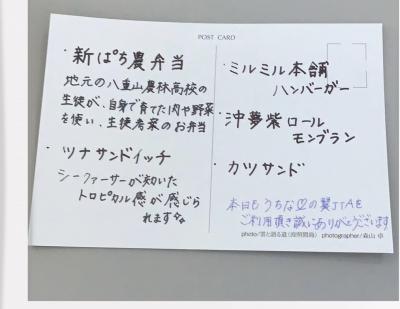 POST CARD
・新ぱち農弁当
地元の八重山農林高校の
生徒が、自身で育てた肉や野菜
を使い、生徒考案のお弁当
・ツナサンドイッチ
シーファーサーが効いた
トロピカル感が感じら
れます
・ミルミル本舗
ハンバーガー
・沖夢紫ロール
モンブラン
・カツサンド
本日もうちなーの翼JTAを
ご利用頂き誠にありがとうございます
photo/雲と語る道(波照間島) photographer/森山 卓